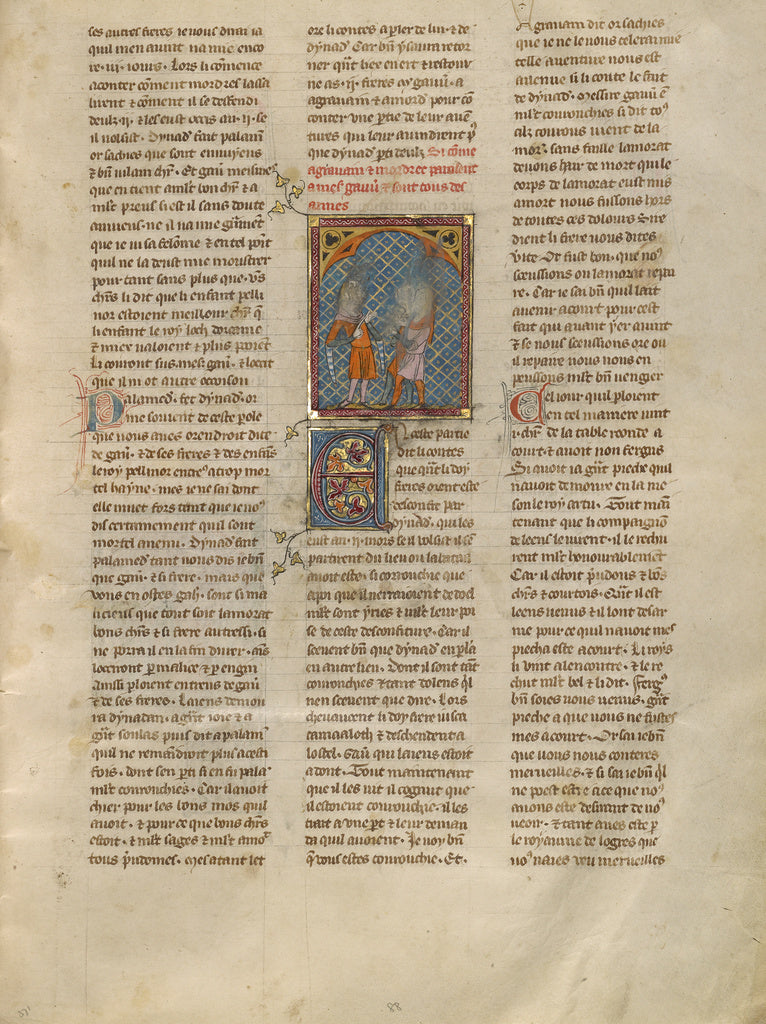 ses autres freres ie vous dirai ia
qui men auint na mie enco
re .iii. iours. Lors li comence
a conter coment mordres lassa
liuent & coment il se deffendi
deulz .ij. & les eust occis au .ij. se
il volsist. Dynad fait palam
or sachies que sont enuyeus
& bn vilain chr. Et gau meisme
que en tient a mlt bon chr & a
mlt preus si est il sans doute
anuieus. ne il na mie grament
que ie vi sa felonie & en tel point
quil ne la deust mie moustrer
pour tant sans plus que .vs
chrs li dit que li enfant pelli
nor estoient meillour chr q
li enfant le roy loth dorcanie
& miex valoient & plus
li couront sus mes gau. & locit
que il ni ot autre occoison
Palamed. fet dynad. or
me souient de ceste pole
que vous aues orendroit dite
de gau. & de ses freres & des enfans
le roy pellinor entre a trop mor
tel hayne. mes ie ne sai dont
elle muet fors tant que ie uo
dis certainement quil sont
mortel anemi. Dynad fait
palamed tant vous dis ie bn
que gau. & si frere. mais que
vous en ospes gah. sont si ma
licieus que tout soit lamorat
bons chrs & si frere autressi. si
ne porra il en la fin durer. ains
locirront p malice & p engin
Ainssi ploient entreus de gau
& de ses freres. Laiens demou
ra dynadan. a grt ioie & a
grt soulas puis dit a palam
quil ne remaindroit plus a cesti
fois. dont sen pti si en fu pala
mlt courouchies. Car il auoit
chier pour les bons mos quil
auoit. & pour ce que bons chrs
estoit. & mlt sages & mlt amoit
tous pudomes. mes atant let
ore li contes a pler de lui. & de
dynad. Car bn y saura retor
ner qnt lieu en ert & restour
ne as .ij. freres mr gauu. a
agrauain & a mord pour co
conter vne ptie de leur auen
tures qui leur auindrent p
que dynad pti deulz. Si come
agrauain & mordrec parolent
a mes gauu & sont tous des
armes
En ceste partie
dit li contes
que qnt li doy
freres orent este
desconfit par
dynad. qui les
eust an .ij. mors se il volsist il se
partirent du lieu ou la bataille
auoit este. si courouchie que
a poi que il nerraioient de doel
mlt sont yries & mlt leur poi
se de ceste desconfiture. Car il
sceuent bn que dynad en pla
en autre lieu. Dont il sont tant
courouchies & tant dolens ql
nen sceuent que dire. Lors
cheuauchent li doy frere iusca
camaaloth & descendent a
lostel. Gau qui laiens estoit
adont. Tout maintenant
que il les vit il cognut que
il estoient courouchie. il les
trait a vne pt & leur deman
da quil auoient. Je voy bn
q vous estes courouchie. Et.
Agrauain dit or sachies
que ie ne le vous celeraiue mie
telle auenture nous est
auenue si li conte le fait
de dynad. Messire gauu e
mlt courouchies si dit to
cilz courous vient de la
mor. sans faille lamorat
deuons hair de mort qui le
corps de lamorat eust mis
a mort nous fussons hors
de toutes ces dolours. Sire
dient li frere vous dites
vite Or fust bon. que nos
sceussions ou lamorat repai
re. Car ie sai bn quil lait
auenir a court pour cest
fait qui auant yer auint
& se nous sceussions ore ou
il repaire nous nous en
peussions mlt bn uengier
Cel iour quil ploient
en tel maniere vint
.i. chr de la table reonde a
court. & auoit non fergus
Si auoit ia grt pieche quil
nauoit demoure en la me
son le roy artu. Tout main
tenant que li compaignon
de leens le virent. il le rechu
rent mlt honnourablement
Car il estoit pudons & bos
chrs & courtois. Qnt il est
leens venus & il lont desar
me pour ce quil nauoit mes
piecha este a court. Li roys
li vint alencontre. & le re
chut mlt bel & li dit. Fergus
bn soies vous venus. grt
pieche a que vous ne fustes
mes a court. Or sai ie bn
que vous nous conteres
merueilles. & si sai ie bn ql
ne poet estre a ce que nos
auons este desirant de vos
veoir. & tant aues este p
le royaume de logres que
nos naies veu merueilles
88